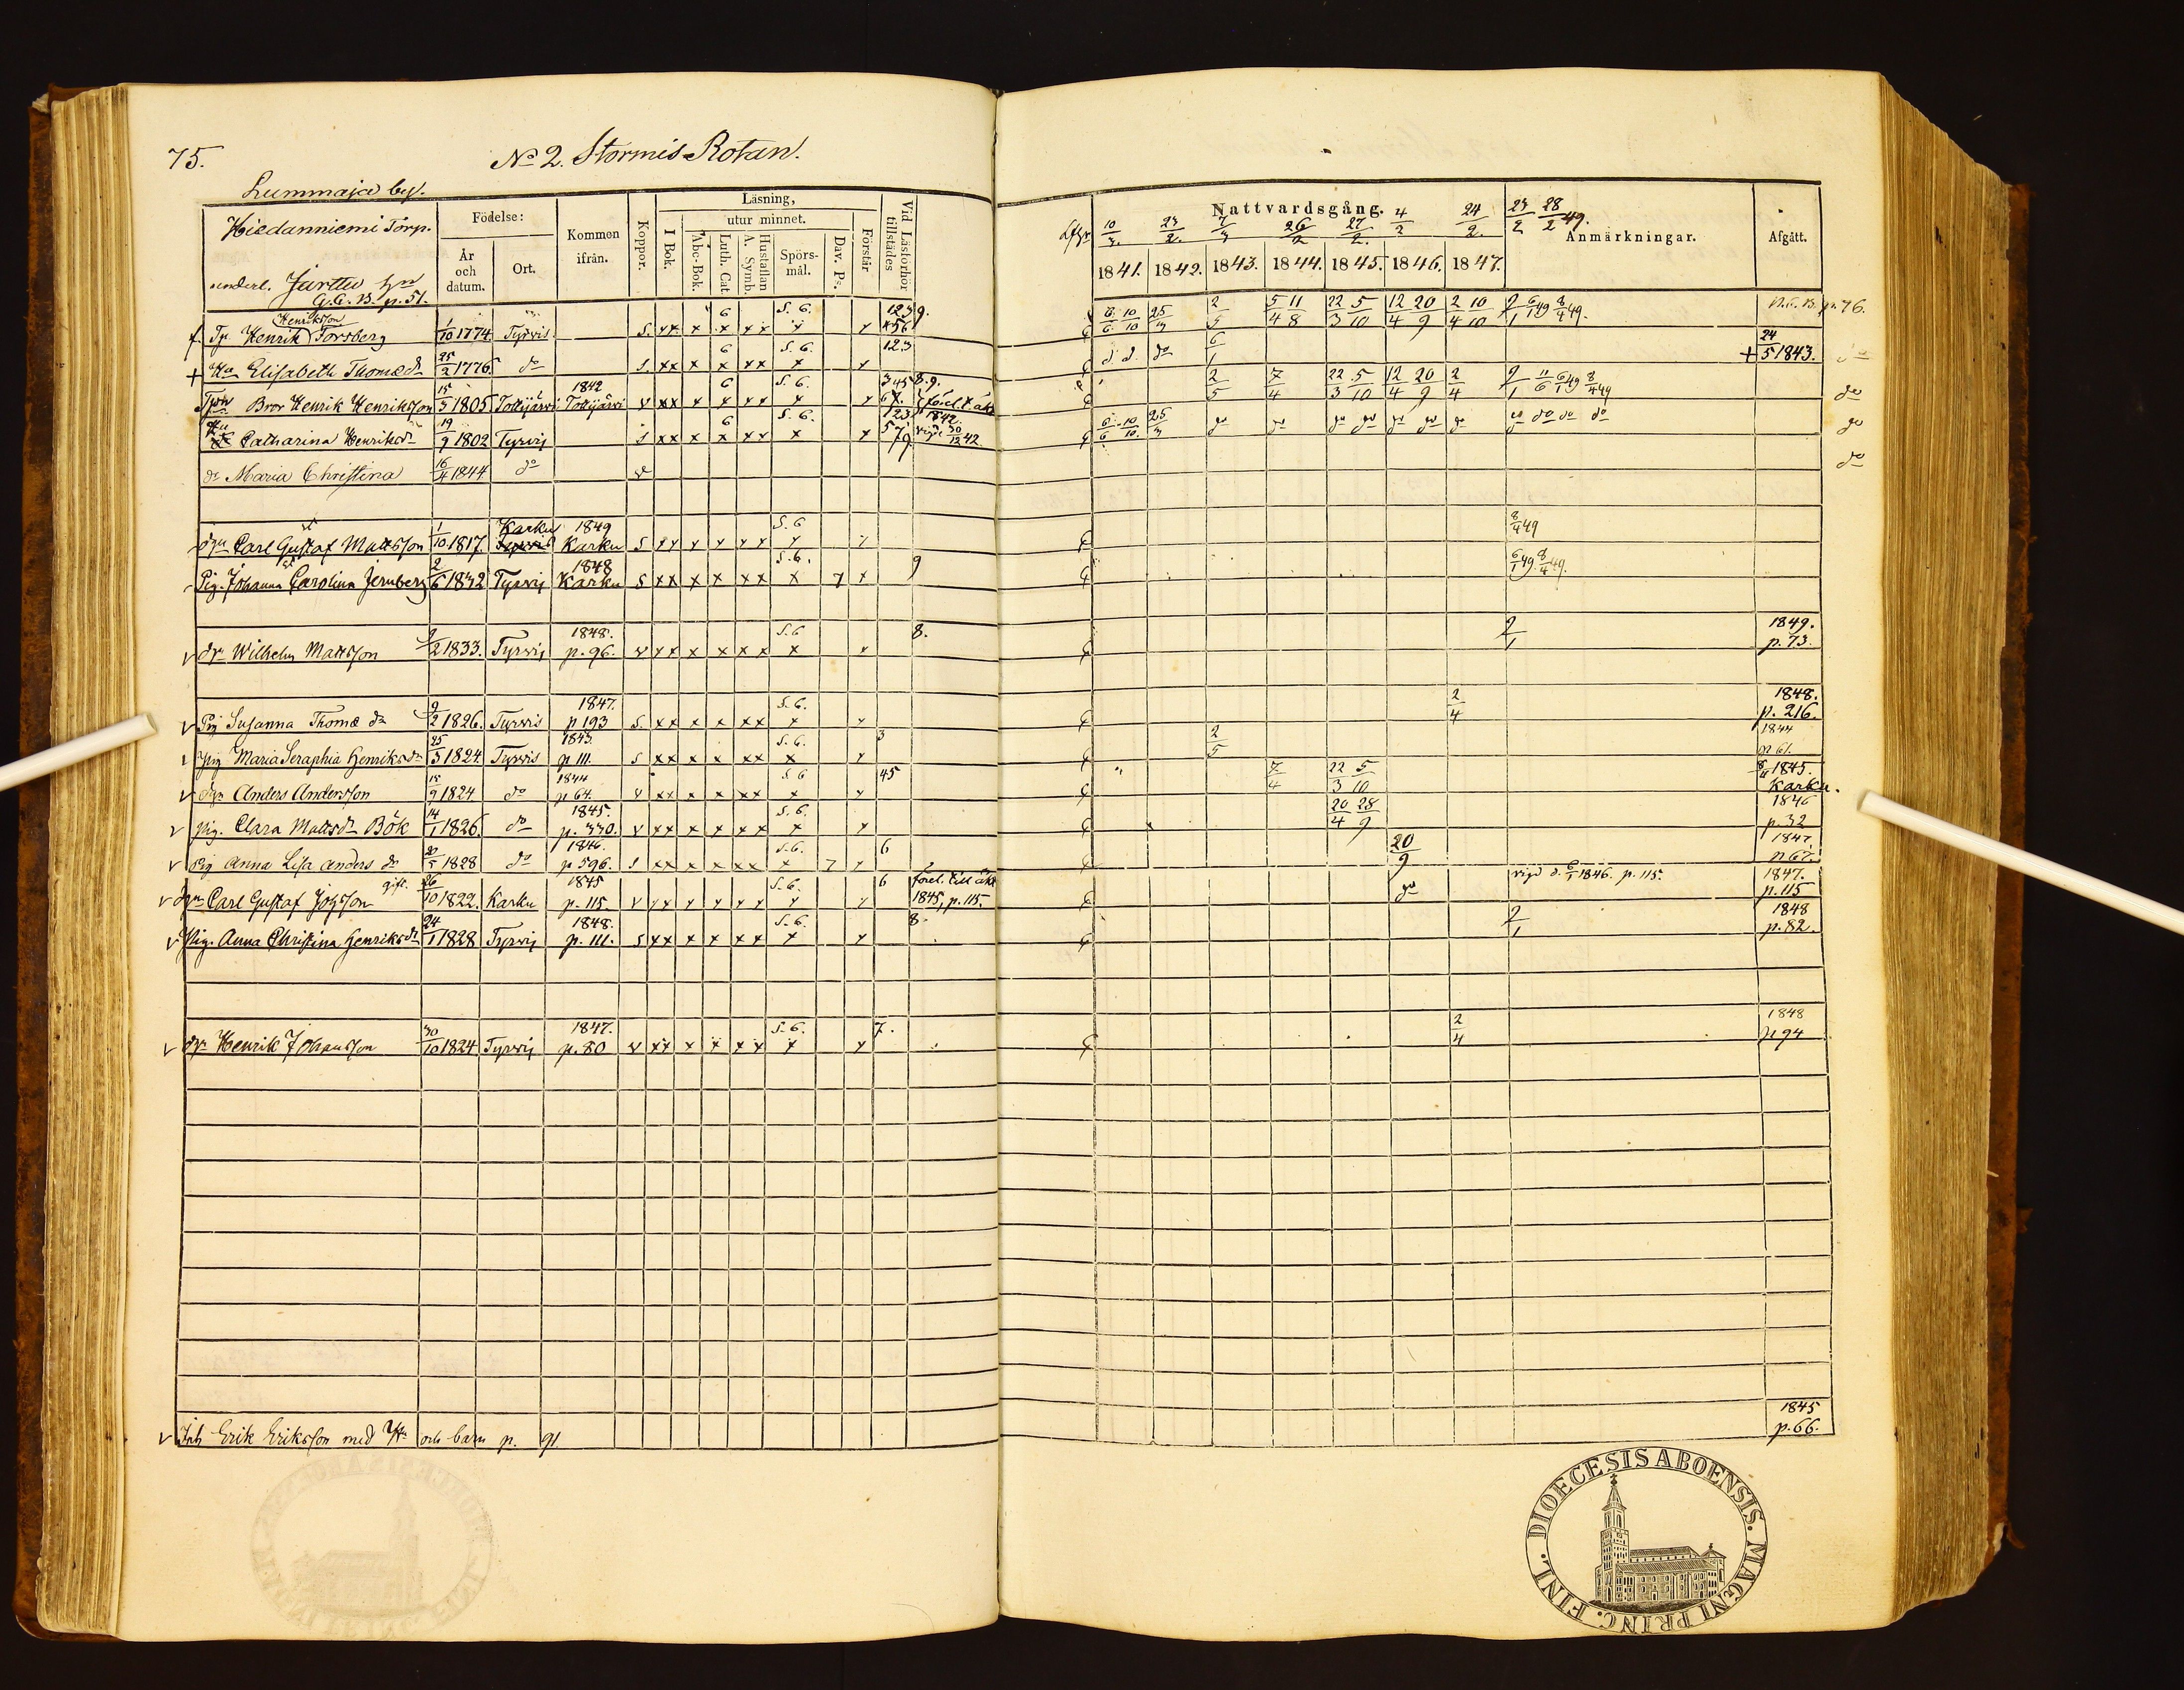 75.
No 2. Stormis Rotan.
Lummaja by.
Hiedanniemi Torp.
underl. Jarttu
G. C. B. p. 51.
Födelse:
År och datum.
Ort.
Kommen ifrån.
Koppor.
Läsning,
I Bok.
utur minnet.
Abc-Bok.
Luth. Cat.
Hustaflan A. Symb.
Spörs-mål.
Dav. Ps.
Förstår
Vid Läsförhör tillstädes
Nattvardsgång.
10/3 23/2 7/3 26/2 27/2 4/2 24/2 23/2 28/2 49.
1841. 1842. 1843. 1844. 1845. 1846. 1847.
Anmärkningar.
Afgått.
Henriksson
Tp Henrik Forsberg 1/10 1774 Tyrvis S. 6 S. 6. 1239. 56 2/5 5/4 11/8 22/3 5/10 12/4 20/9 2/4 10/10 2/1 6/1 49 8/4 49. N. C. B. p. 76.
Hu Elisabeth Thomæ dr 25/2 1776 do 6 S. 6. 123 do 6/1 + 24/5 1843. do
Bror Henrik Henriksson 15/5 1805 Tottijärvi 1842 Tottijärvi v 6 S. 6. 345 8.9. 67. förel. t. äkt 1842 2/5 7/4 22/3 5/10 12/4 20/9 2/4 2/1 11/6 6/1 49 8/4 49 do
Hu Catharina Henriksdr 19/9 1802 Tyrvis s 6 S. 6. 123 579 vigd 30/12 42. 25/3 do do do do do do do do do do do do
dr Maria Christina 16/4 1844 do v do
Dr Carl Gustaf Mattsson 1/10 1817. Karku 1849 Karku S S. 6 8/4 49
Pig. Johanna Carolina Jernberg 2/6 1832 Tyrvis 1848 Karku S S. 6. 9 6/1 49 8/4 49.
dr Wilhelm Mattsson 9/2 1833. Tyrvis 1848. p. 96. v S. 6 8. 2/1 1849. p. 73.
Pig Susanna Thomæ dr 9/2 1826. Tyrvis 1847. p 193 S. S. 6. 2/4 1848. p. 216.
Pig Maria Seraphia Henriksdr 25/3 1824 Tyrvis 1843. p 111. S S. 6. 3 2/5 1844 p 61.
dr Anders Andersson 15/9 1824 do 1844 p 64. v S 6 45 7/4 22/3 5/10 8/4 1845. Karku.
Pig. Clara Mattsdr Bök 14/1 1826. do 1845. p. 330. v S. 6. 20/4 28/9 1846 p. 32
Pig Anna Lisa Anders dr 20/5 1828 do 1846. p 596. s S. 6. 6 20/9 1847. p 67.
Dr Carl Gustaf Johsson gift. 26/10 1822. Karku 1845 p. 115 v S. 6. 6 förel. till äkt 1845, p. 115. do vigd d. 6/1 1846. p. 115. 1847. p. 115
Pig. Anna Christina Henriksdr 24/1 1828 Tyrvis 1848. p. 111. S S. 6. 8. 2/1 1848 p. 82.
dr Henrik Johansson 30/10 1824 Tyrvis 1847. p. 80 v S. 6. 7. 2/4 1848 p. 94
Inh Erik Eriksson med Hu och barn p. 91 1845 p. 66.
DIOECESIS ABOENSIS. MAGNI PRINC. FINL.